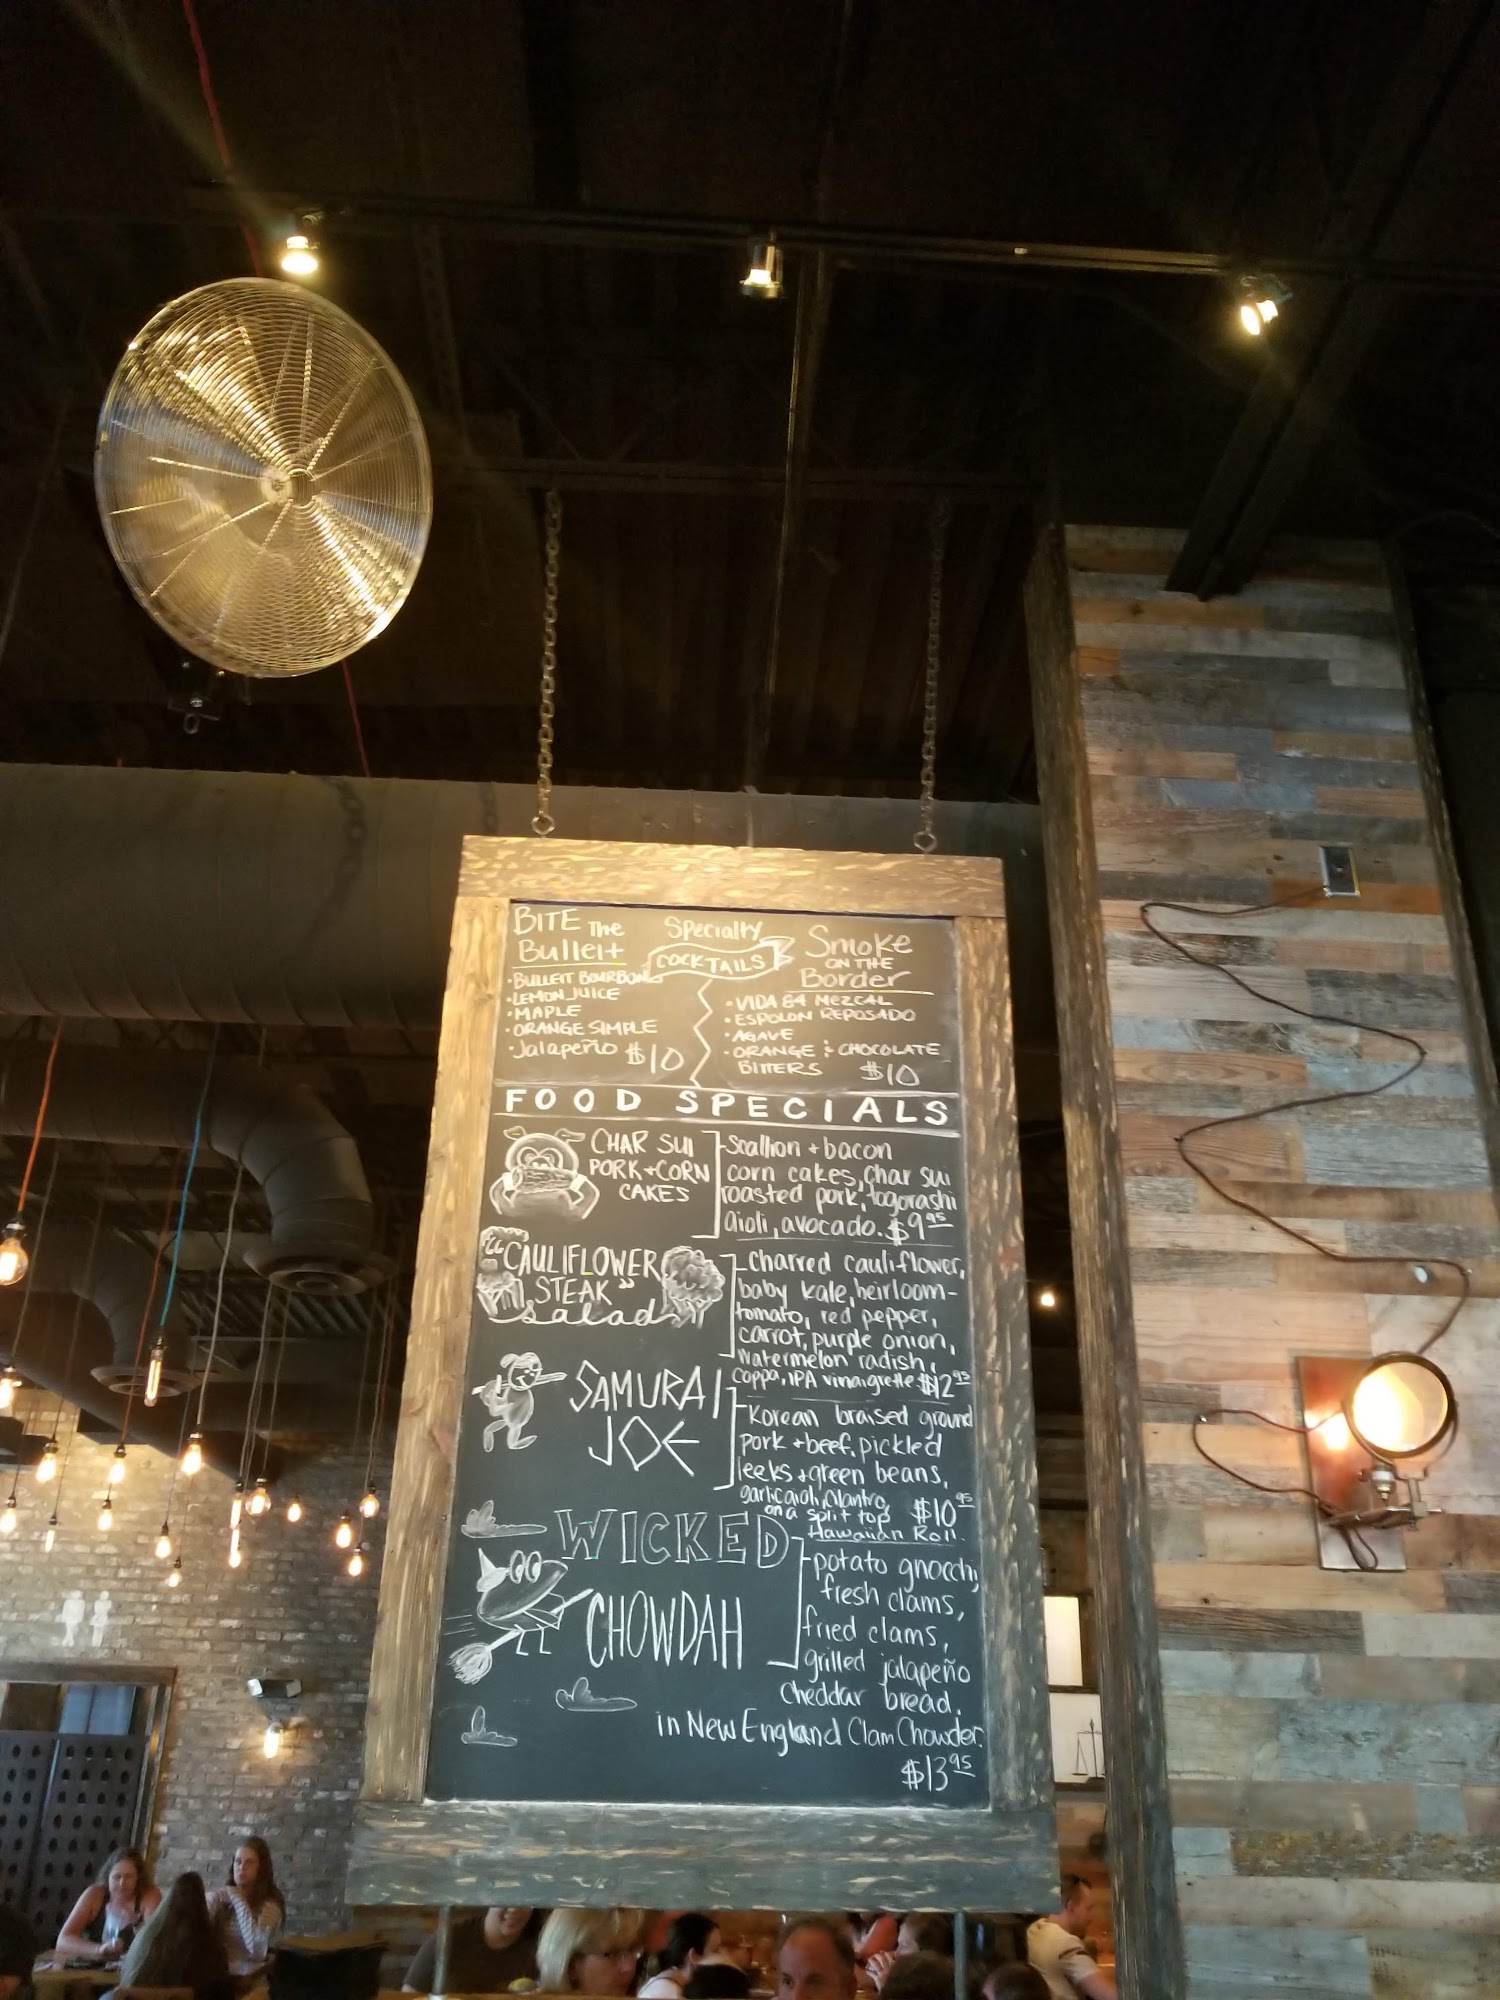 BITE THE
Bulleit
• BULLEIT BOURBON
• LEMON JUICE
• MAPLE
• ORANGE SIMPLE
• Jalapeño $10
Specialty
COCKTAILS
Smoke
ON THE
Border
• VIDA MEZCAL
• ESPOLON REPOSADO
• AGAVE
• ORANGE & CHOCOLATE
BITTERS $10
FOOD SPECIALS
CHAR SUI
PORK + CORN
CAKES
Scallion + bacon
corn cakes, char sui
roasted pork, togorashi
aioli, avocado. $9.95
"CAULIFLOWER
STEAK"
salad
Charred cauliflower,
baby kale, heirloom-
tomato, red pepper,
carrot, purple onion,
watermelon radish,
coppa, IPA vinaigrette $12.95
SAMURAI
JOE
Korean braised ground
pork + beef, pickled
leeks + green beans,
garlic aioli, cilantro,
on a split top $10.95
Hawaiian Roll.
WICKED
CHOWDAH
potato gnocchi,
fresh clams,
fried clams,
grilled jalapeño
cheddar bread.
in New England Clam Chowder.
$13.95